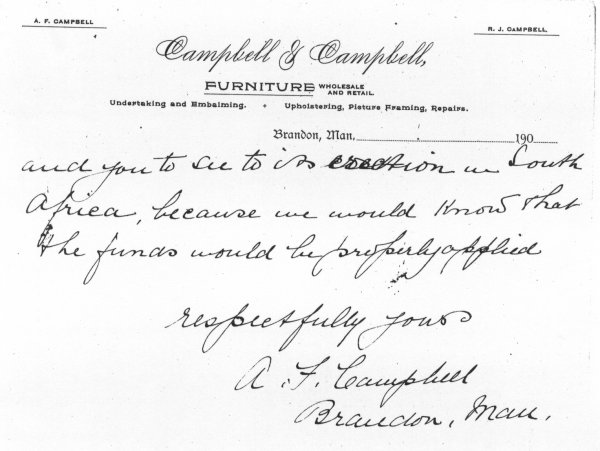 A. F. CAMPBELL
R. J. CAMPBELL.
Campbell & Campbell,
FURNITURE WHOLESALE AND RETAIL.
Undertaking and Embalming. • Upholstering, Picture Framing, Repairs.
Brandon, Man. 190
and you to see to its erection in South
Africa, because we would know that
the funds would be properly applied
respectfully yours
A. F. Campbell
Brandon, Man.